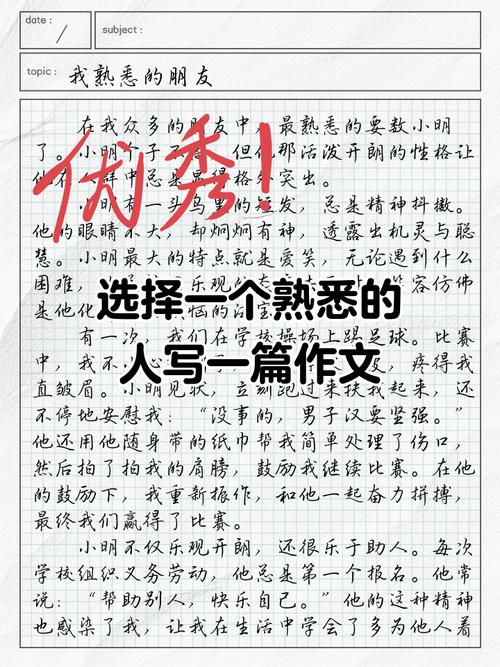 date :
subject :
topic : 我熟悉的朋友
在我众多的朋友中，最熟悉的要数小明
了。小明个子不，但他那活泼开朗的性格让
他在人群中总是显得格外突出。
优秀！
小明有一头乌黑的短发，总是精神抖擞。
他的眼睛不大，却炯炯有神，透露出机灵与聪
慧。小明最大的特点就是爱笑，无论遇到什么
困难，乐观的容仿佛
选择一个熟悉的
是他化恼的宝
有一次，我们在学校操场上踢足球。比赛
人写一篇作文
中，我不小心，疼得我
直皱眉。小明见状，立刻跑过来扶我起来，还
不停地安慰我：“没事的，男子汉要坚强。”
他还用他随身带的纸巾帮我简单处理了伤口，
然后拍了拍我的肩膀，鼓励我继续比赛。在他
的鼓励下，我重新振作，和他一起奋力拼搏，
最终我们赢得了比赛。
小明不仅乐观开朗，还很乐于助人。每次
学校组织义务劳动，他总是第一个报名。他常
说：“帮助别人，快乐自己。”他的这种精神
也感染了我，让我在生活中学会了多为他人着